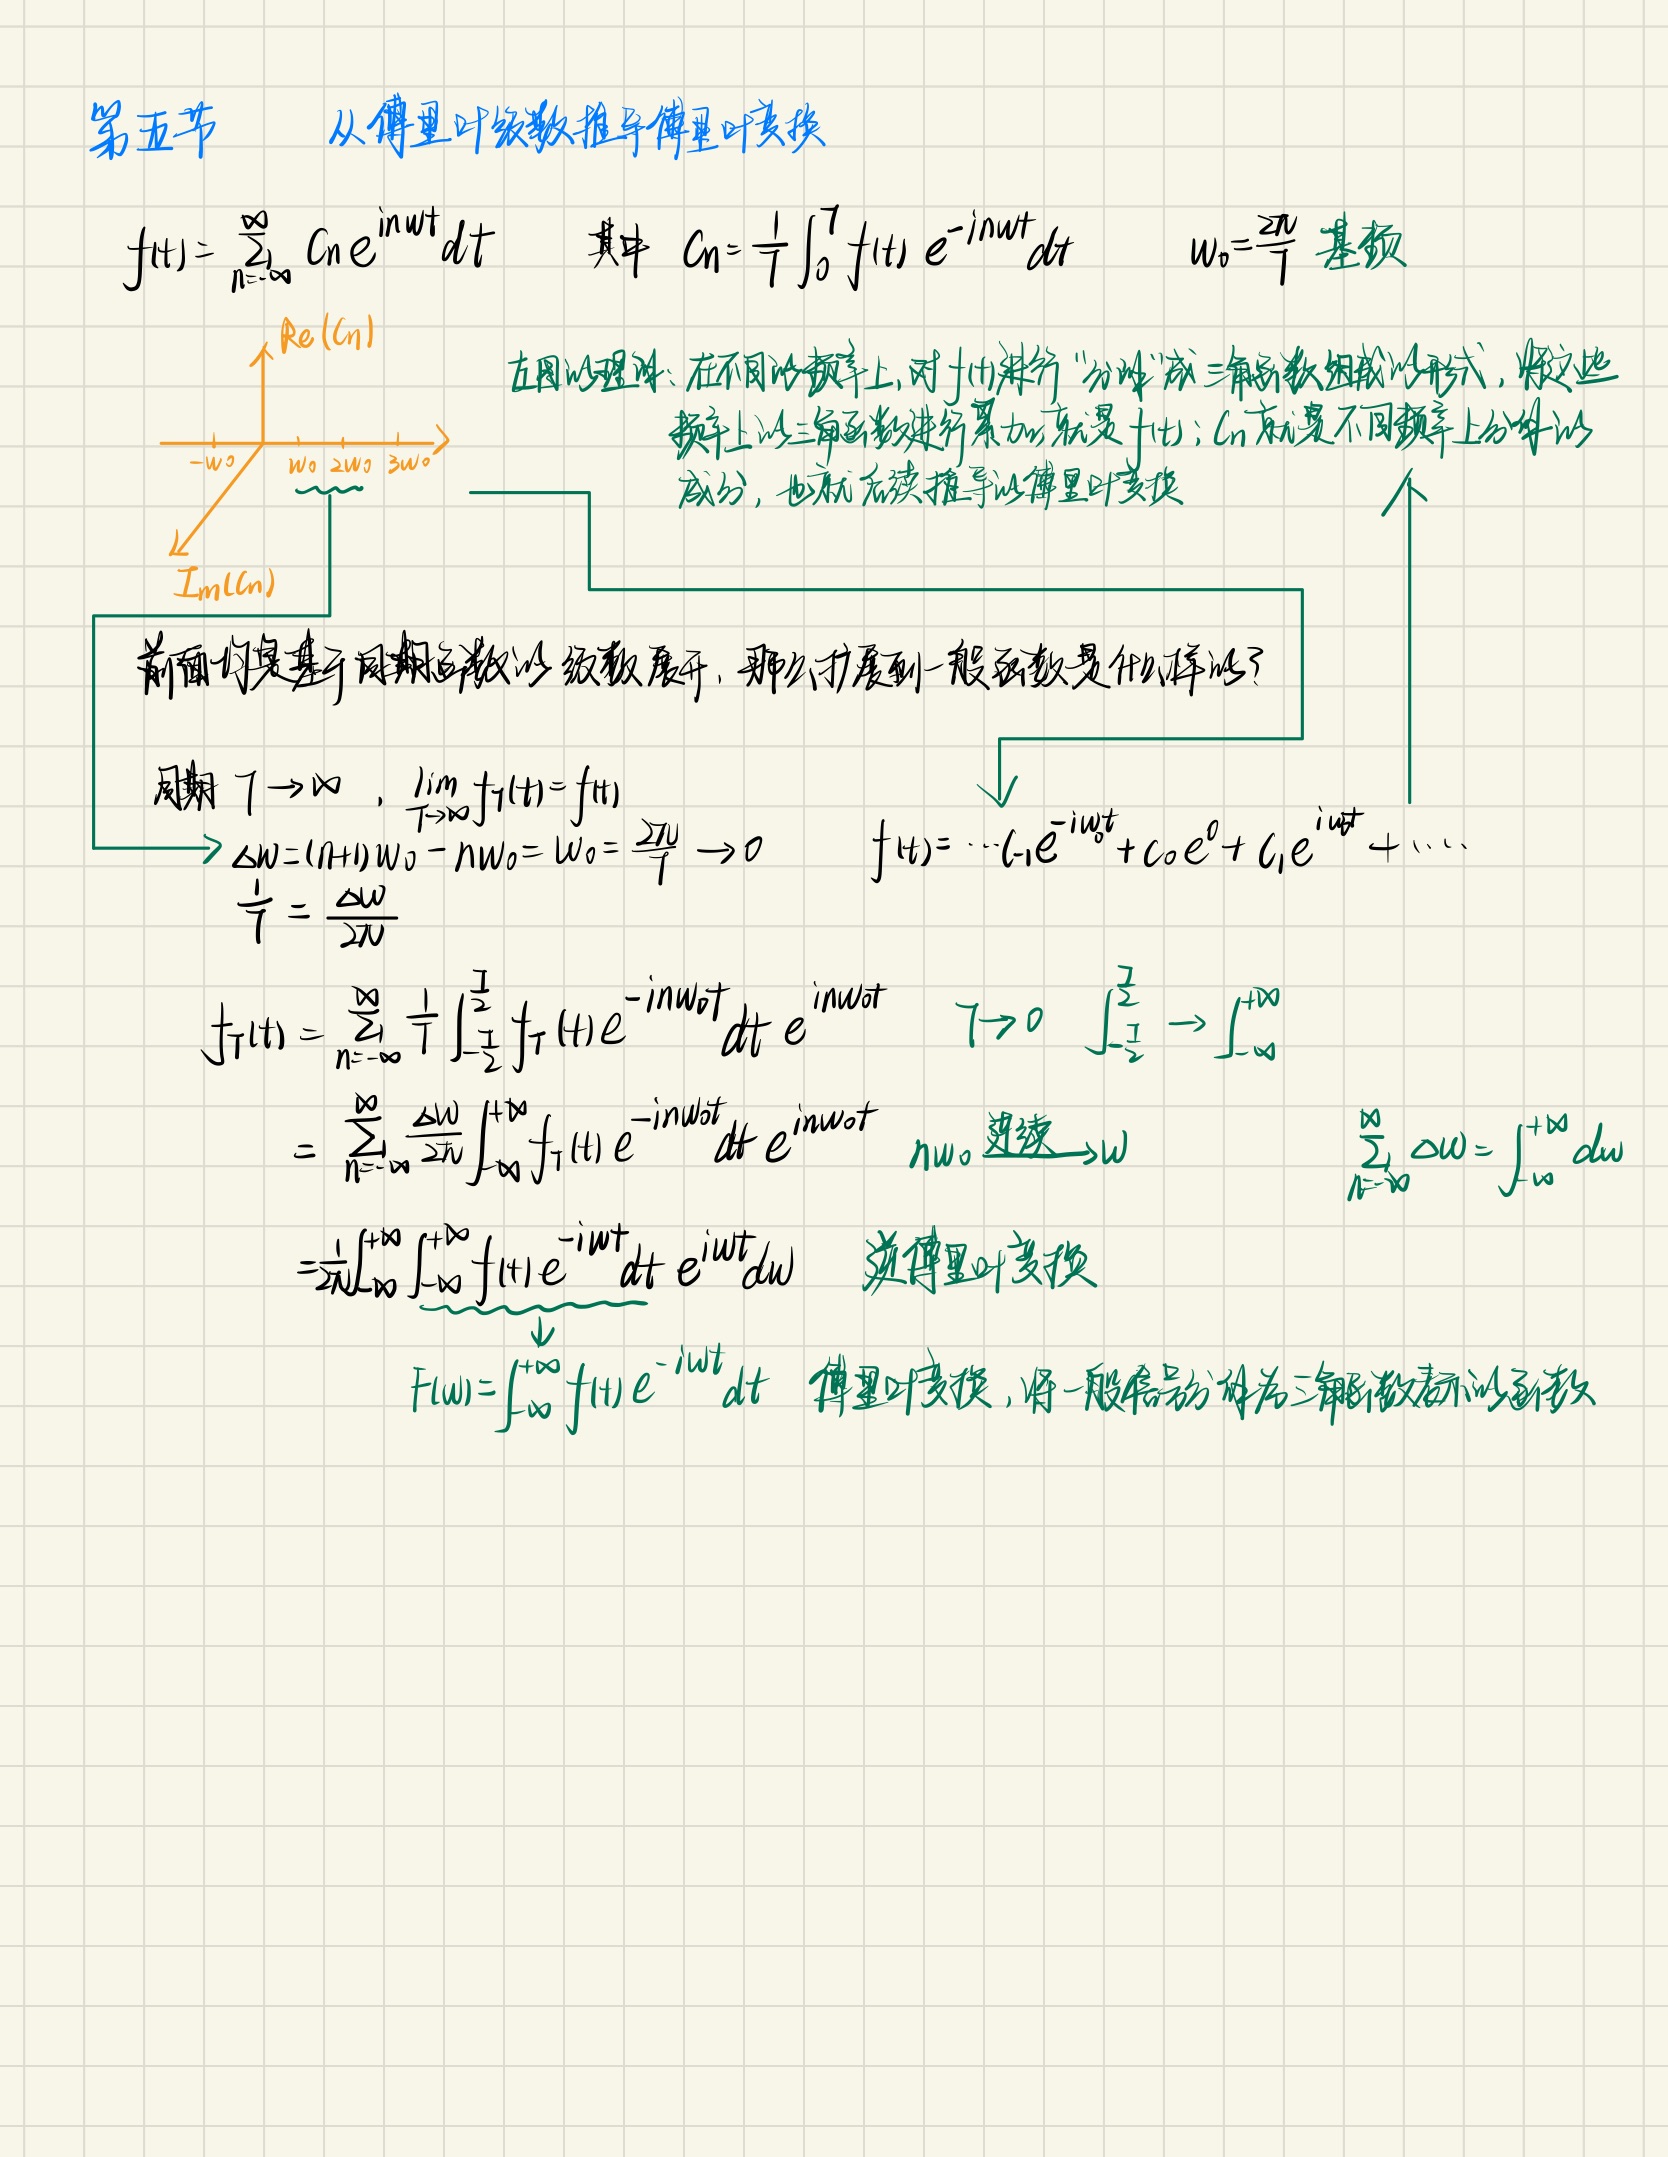 第五节 从傅里叶级数推导傅里叶变换
f(t)=∑_{n=-∞}^{∞} Cn e^{inwt} dt 其中 Cn=1/T ∫_0^T f(t) e^{-inwt} dt w₀=2π/T 基频
Re(Cn)
-w₀ w₀ 2w₀ 3w₀
Im(Cn)
左图的理解:在不同的频率上,对f(t)进行"分解"成三角函数组成的形式,将这些
频率上的三角函数进行累加就是f(t);Cn就是不同频率上分解的
成分,也就后续推导的傅里叶变换
前面均是基于周期函数的级数展开,那么扩展到一般函数是什么样的?
周期 T→∞ , lim_{T→∞} f_T(t)=f(t)
Δw=(n+1)w₀-nw₀=w₀=2π/T→0 f(t)=…C₋₁e^{-iw₀t}+C₀e⁰+C₁e^{iw₀t}+……
1/T=Δw/2π
f_T(t)=∑_{n=-∞}^{∞} 1/T ∫_{-T/2}^{T/2} f_T(t)e^{-inw₀t}dt e^{inw₀t} T→0 ∫_{-T/2}^{T/2}→∫_{-∞}^{+∞}
=∑_{n=-∞}^{∞} Δw/2π ∫_{-∞}^{+∞} f_T(t)e^{-inw₀t}dt e^{inw₀t} nw₀ 连续→w ∑_{n=-∞}^{∞} Δw=∫_{-∞}^{+∞} dw
=1/2π ∫_{-∞}^{+∞} ∫_{-∞}^{+∞} f(t)e^{-iwt}dt e^{iwt}dw 逆傅里叶变换
↓
F(w)=∫_{-∞}^{+∞} f(t)e^{-iwt}dt 傅里叶变换,将一般信号分解为三角函数表示的函数